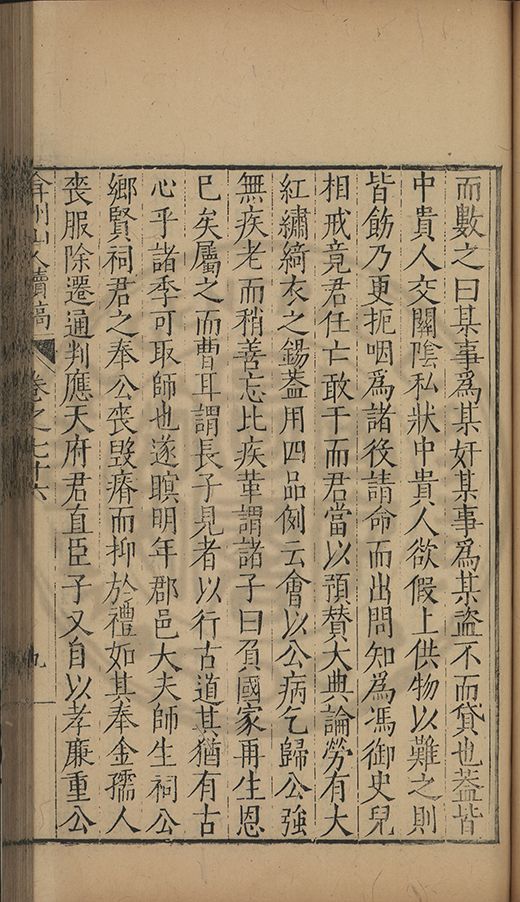 而數之曰某事爲某奸某事爲某盜不而貸也葢皆
中貴人交關陰私狀中貴人欲假上供物以難之則
皆飭乃更扼咽爲諸役請命而出問知為馮御史兒
相戒竟君任亡敢干而君當以預贊大典論勞有大
紅繡綺衣之錫葢用四品例云會以公病乞歸公強
無疾老而稍善忘比疾革謂諸子曰負國家再生恩
巳矣屬之而曹耳謂長子見者以行古道其猶有古
心乎諸季可取師也遂瞑明年郡邑大夫師生祠公
鄉賢祠君之奉公喪毀瘠而抑於禮如其奉金孺人
喪服除遷通判應天府君直臣子又自以孝廉重公
弇州山人續稿 卷之七十六 九